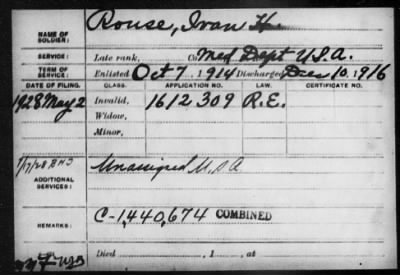 NAME OF SOLDIER: Rouse, Ivan H.
SERVICE: Late rank, Co. Med Dept U.S.A.
TERM OF SERVICE: Enlisted Oct 7, 1914 Discharged Dec 10, 1916
DATE OF FILING. CLASS. APPLICATION NO. LAW. CERTIFICATE NO.
1928 May 2 Invalid, 1612309 R.E.
Widow,
Minor,
ADDITIONAL SERVICES: Unassigned U.S.A.
REMARKS: C-1,440,674 COMBINED
Died , 1 , at